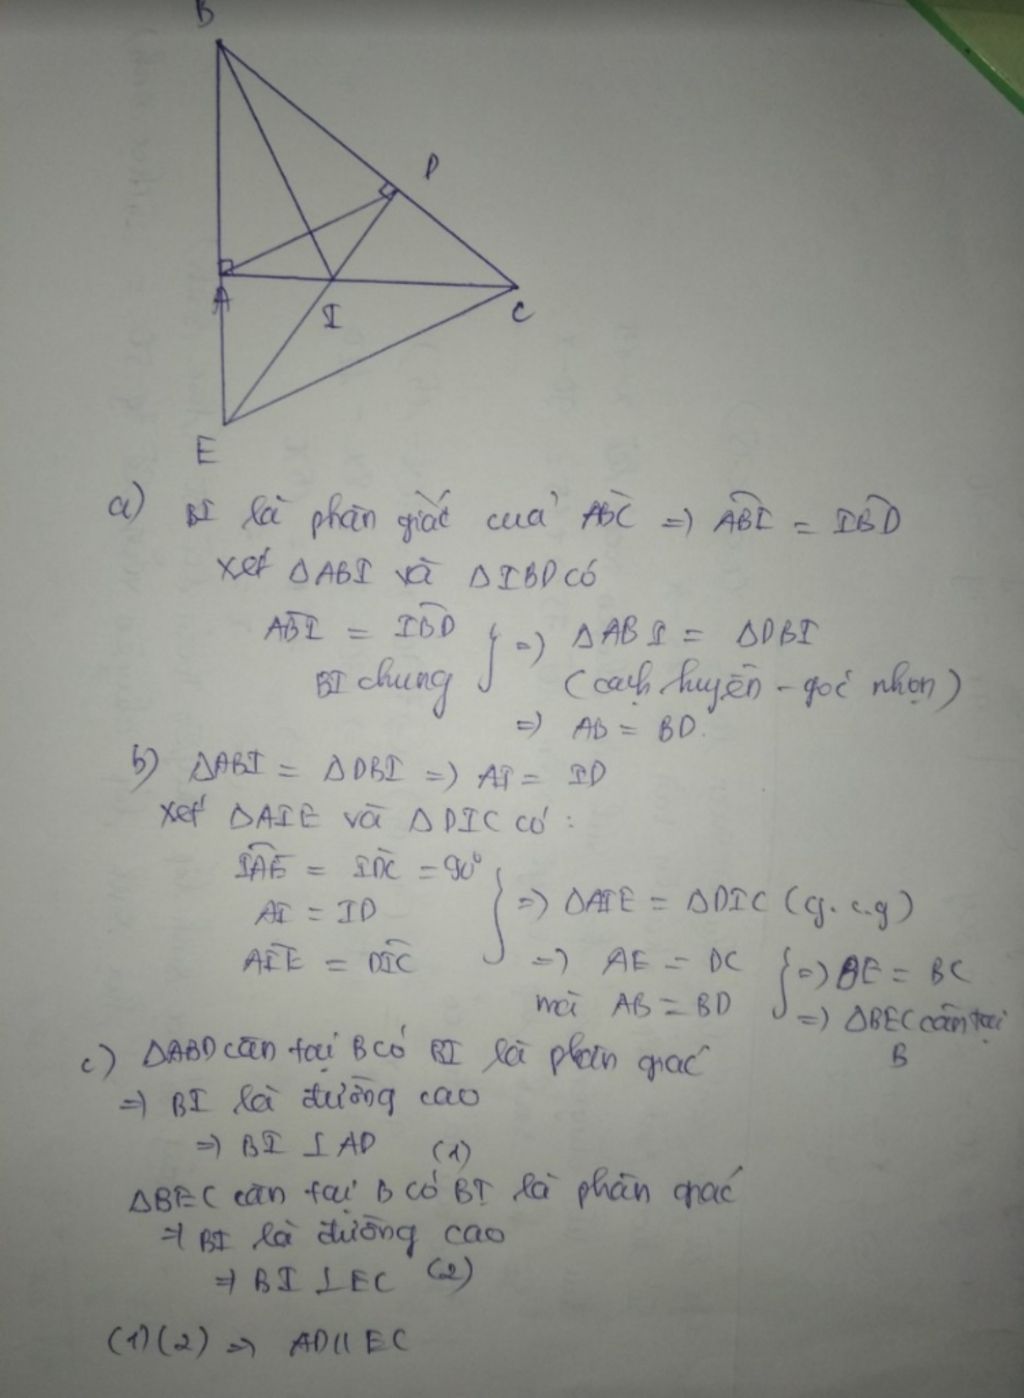 B
D
A
I
C
E
a) BI là phân giác của ABC => ABI = IBD
Xét ΔABI và ΔIBD có
ABI = IBD
BI chung
} => ΔABI = ΔDBI
(cạnh huyền - góc nhọn)
=> AB = BD.
b) ΔABI = ΔDBI => AI = ID
Xét ΔAIE và ΔDIC có:
IAE = IDC = 90°
AI = ID
AIE = DIC
} => ΔAIE = ΔDIC (g.c.g)
=> AE = DC
mà AB = BD
} => BE = BC
=> ΔBEC cân tại
B
c) ΔABD cân tại B có BI là phân giác
=> BI là đường cao
=> BI ⊥ AD (1)
ΔBEC cân tại B có BI là phân giác
=> BI là đường cao
=> BI ⊥ EC (2)
(1)(2) => AD // EC